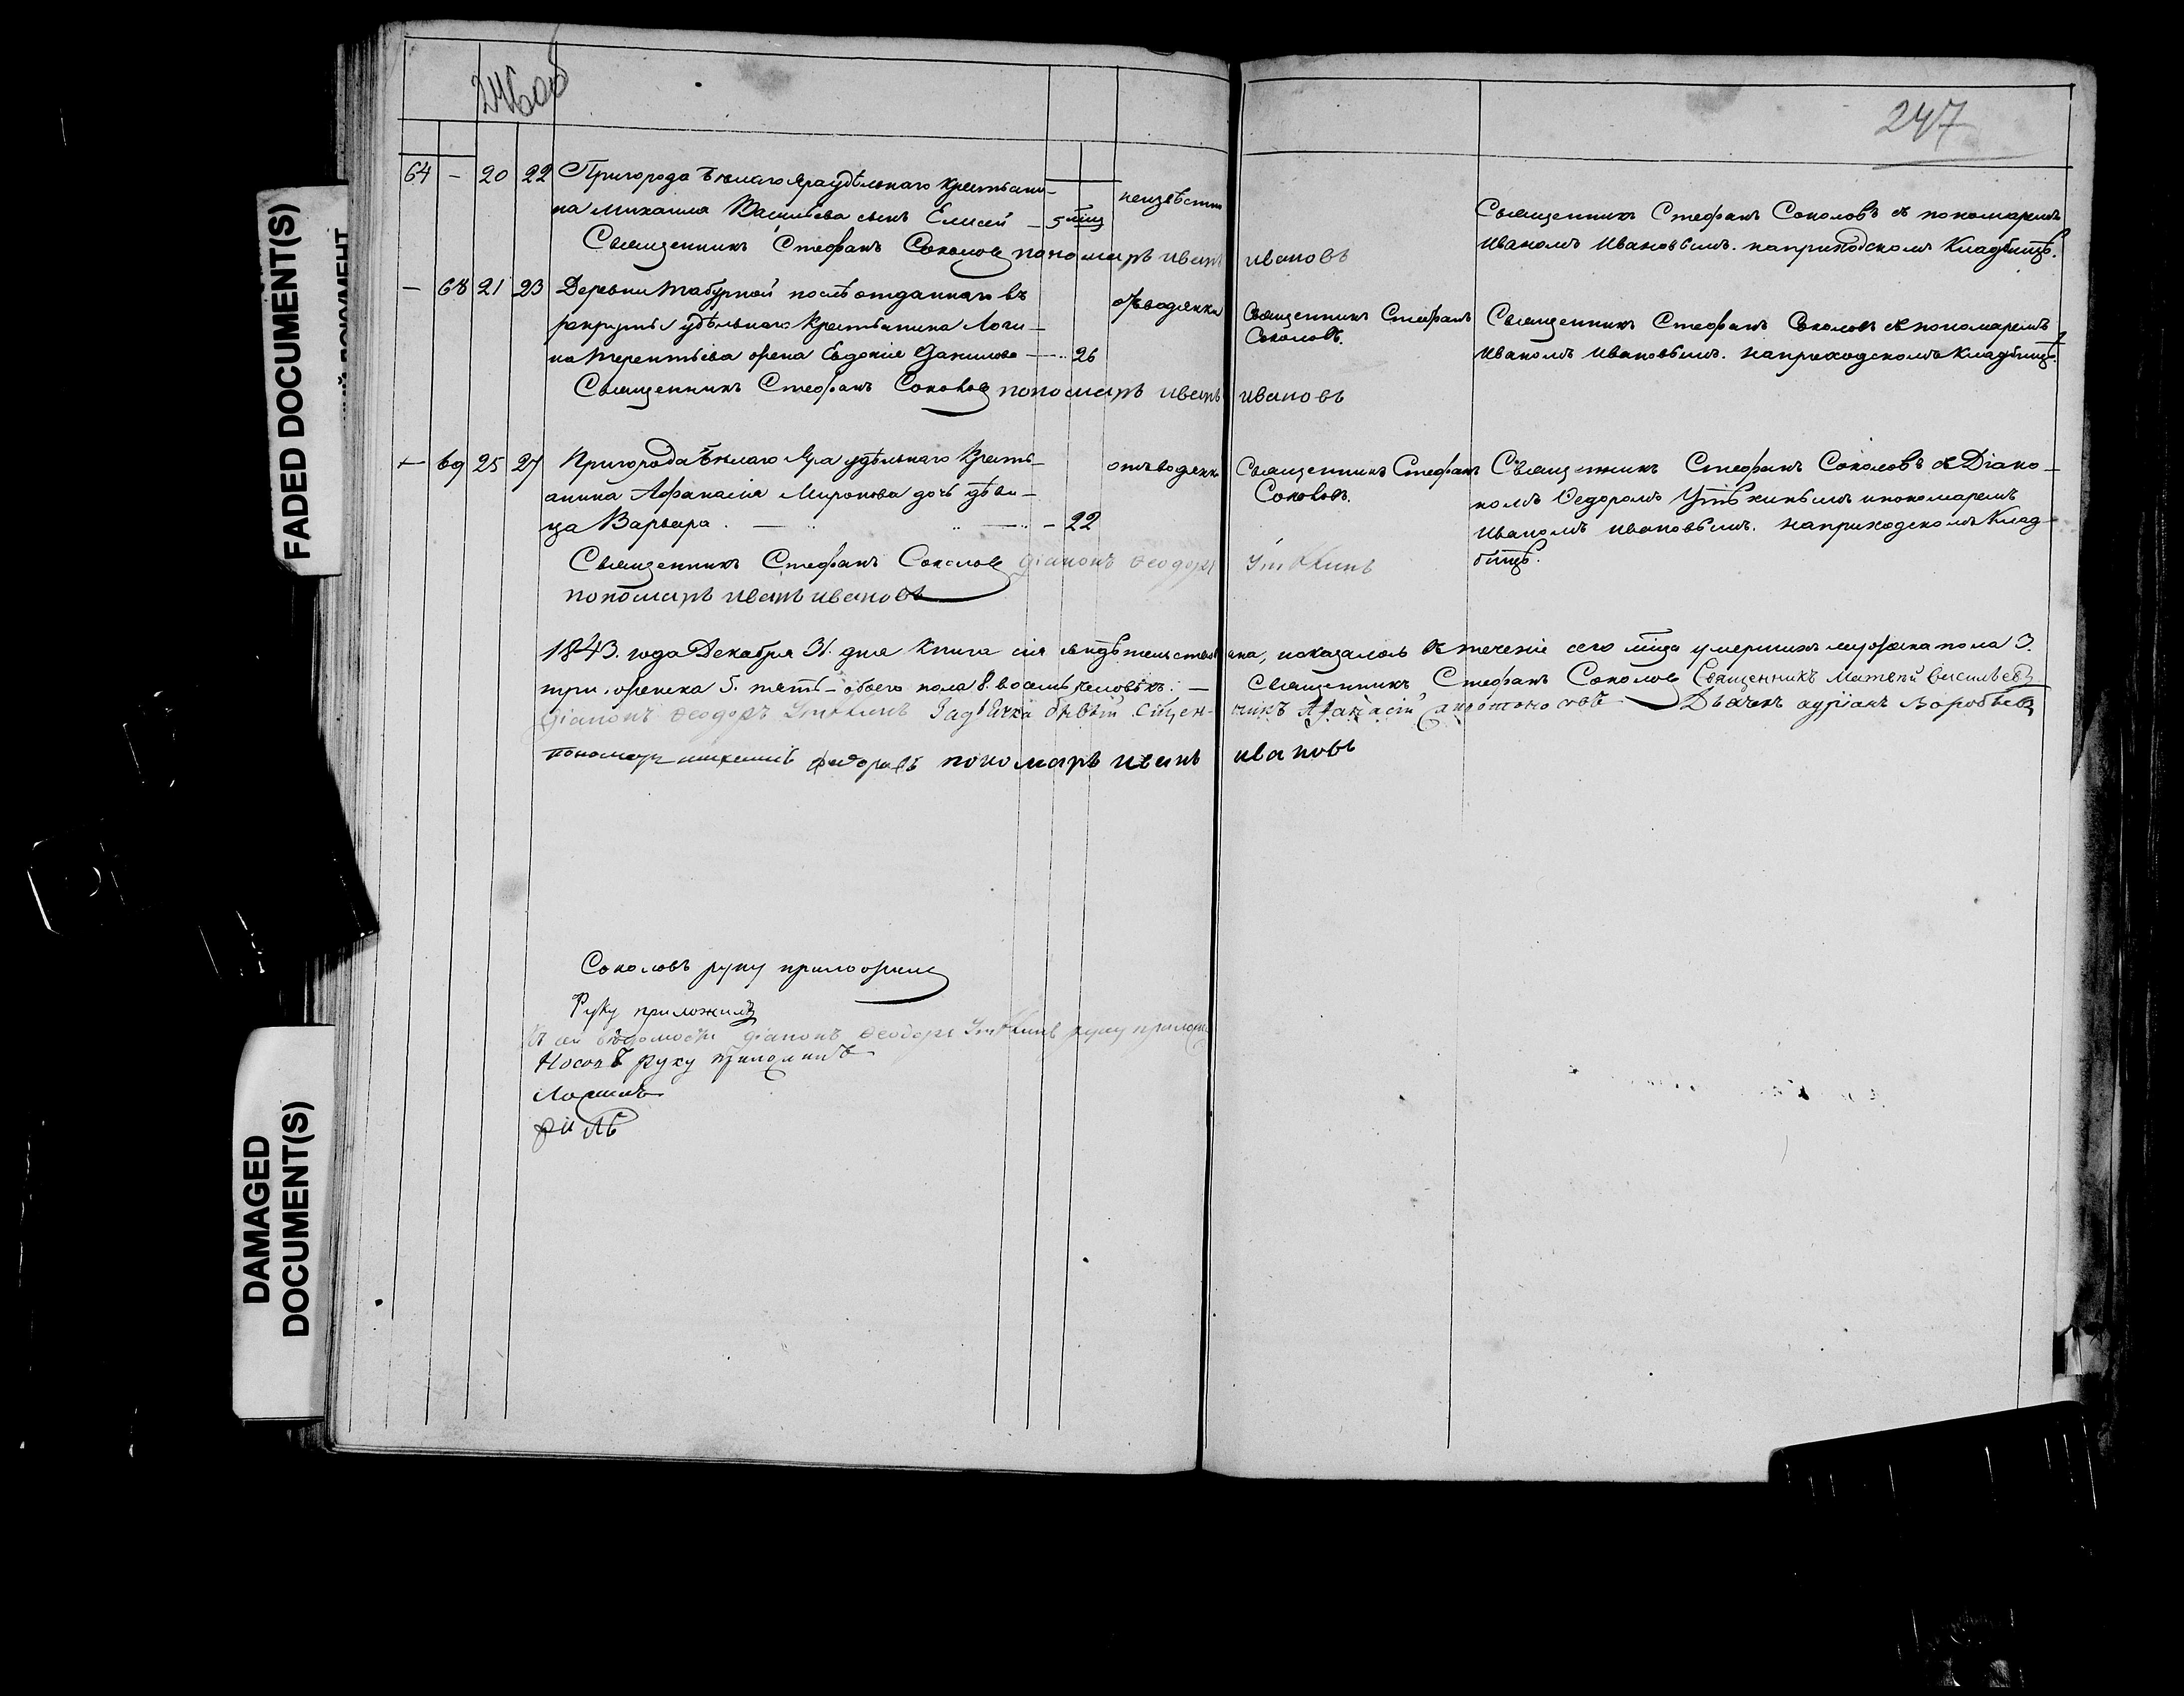 246об
247
64 - 20 22 Пригорода Бѣлаго Яра удѣльнаго крестьяни-
на Михаила Васильева сынъ Елисей - 5 мцъ неизвѣстно
Священникъ Стефанъ Соколовъ пономарь иванъ ивановъ
Священникъ Стефанъ Соколовъ съ пономаремъ
Иваномъ Ивановымъ. на приходскомъ кладбищѣ.
- 68 21 23 Деревни Табурной послѣ отданнаго въ
рекруты удѣльнаго крестьянина Логи-
на Терентьева жена Евдокія Данилова — 26
отъ водянки
Священникъ Стефанъ
Соколовъ.
Священникъ Стефанъ Соколовъ съ пономаремъ
Иваномъ Ивановымъ. на приходскомъ кладбищѣ.
Священникъ Стефанъ Соколовъ пономарь иванъ ивановъ
- 69 25 27 Пригорода Бѣлаго Яра удѣльнаго Кресть-
янина Афанасія Миронова дочь дѣви-
ца Варвара. — 22
отъ водянки
Священникъ Стефанъ
Соколовъ.
Священникъ Стефанъ Соколовъ съ Діако-
номъ Федоромъ Утѣхинымъ и пономаремъ
Иваномъ Ивановымъ. на приходскомъ Клад-
бищѣ.
Священникъ Стефанъ Соколовъ діаконъ Феодоръ Утѣхинъ
пономарь иванъ ивановъ
1843. года Декабря 31. дня Книга сія свидѣтельствована, показалось въ теченіе сего мца умершихъ мужеска пола 3.
три, женска 5. пять - обоего пола 8. восемь человѣкъ. — Священникъ Стефанъ Соколовъ Священникъ Матвѣй Васильевъ
діаконъ Феодоръ Утѣхинъ Задьячка бывый Сщенникъ Афанасій Дьячекъ Воробьевъ
пономарь Федоровъ пономарь иванъ ивановъ
Соколовъ руку приложилъ
Руку приложилъ
Къ сей вѣдомости діаконъ Феодоръ Утѣхинъ руку приложи
Носовъ руку приложилъ
ложилъ
жилъ
FADED DOCUMENT(S)
DAMAGED
DOCUMENT(S)